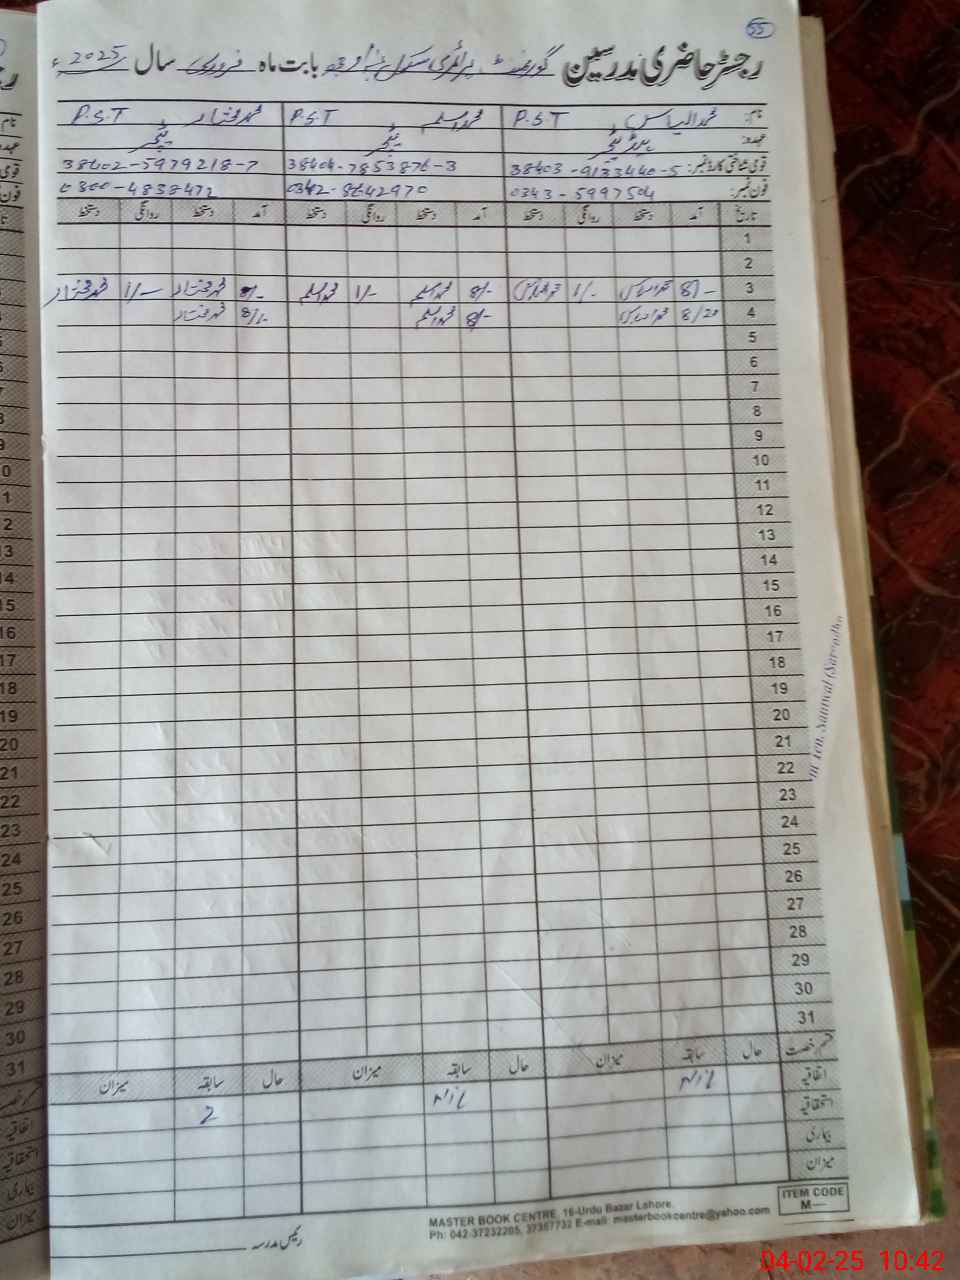 55
رجسٹر حاضری مدرسین گورنمنٹ پرائمری سکول بابت ماہ فروری سال 2025ء
نام: محمد الیاس P.S.T محمد اسلم P.S.T محمد مختار P.S.T
عہدہ: ہیڈ ٹیچر ٹیچر ٹیچر
قومی شناختی کارڈ نمبر: 38403-9133440-5 38404-7853876-3 38402-5979218-7
فون نمبر: 0343-5997504 0342-8642970 0300-4838472
تاریخ آمد دستخط روانگی دستخط آمد دستخط روانگی دستخط آمد دستخط روانگی دستخط
1
2
3 8/- محمد الیاس 1/- محمد الیاس 8/- محمد اسلم 1/- محمد اسلم 8/- محمد مختار 1/- محمد مختار
4 8/20 محمد الیاس 8/- محمد اسلم 8/- محمد مختار
5
6
7
8
9
10
11
12
13
14
15
16
17
18
19
20
21
22
23
24
25
26
27
28
29
30
31
قسم رخصت حال سابقہ میزان حال سابقہ میزان حال سابقہ میزان
اتفاقیہ
استحقاقیہ 2
بیماری
میزان
رئیس مدرسہ
ITEM CODE
M—
MASTER BOOK CENTRE, 16-Urdu Bazar Lahore.
Ph: 042-37232205, 37357732 E-mail: masterbookcentre@yahoo.com
04-02-25 10:42